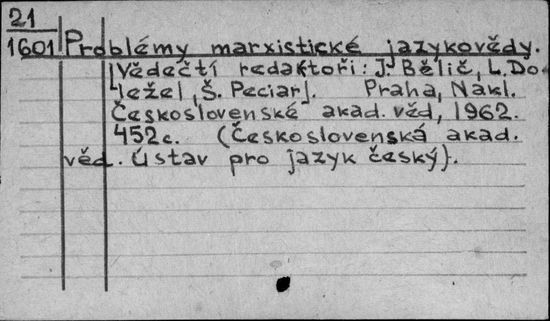 21
1601 Problémy marxistické jazykovědy.
[Vědečtí redaktoři: J. Bělič, L. Do-
ležel, Š. Peciar]. Praha, Nakl.
Československé akad. věd, 1962.
452c. (Československá akad.
věd. Ústav pro jazyk český).